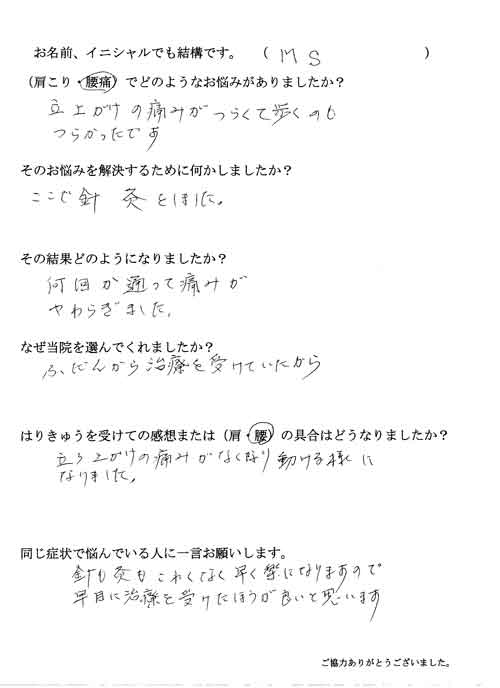 お名前、イニシャルでも結構です。 （ M S ）
（肩こり・腰痛）でどのようなお悩みがありましたか？
立上がけの痛みがつらくて歩くのも
つらかったです
そのお悩みを解決するために何かしましたか？
ここで針 灸をしました。
その結果どのようになりましたか？
何回か通って痛みが
やわらぎました。
なぜ当院を選んでくれましたか？
ふだんから治療を受けていたから
はりきゅうを受けての感想または（肩・腰）の具合はどうなりましたか？
立ち上がけの痛みがなくなり動ける様に
なりました。
同じ症状で悩んでいる人に一言お願いします。
針も灸もこわくなく早く楽になりますので
早目に治療を受けたほうが良いと思います
ご協力ありがとうございました。